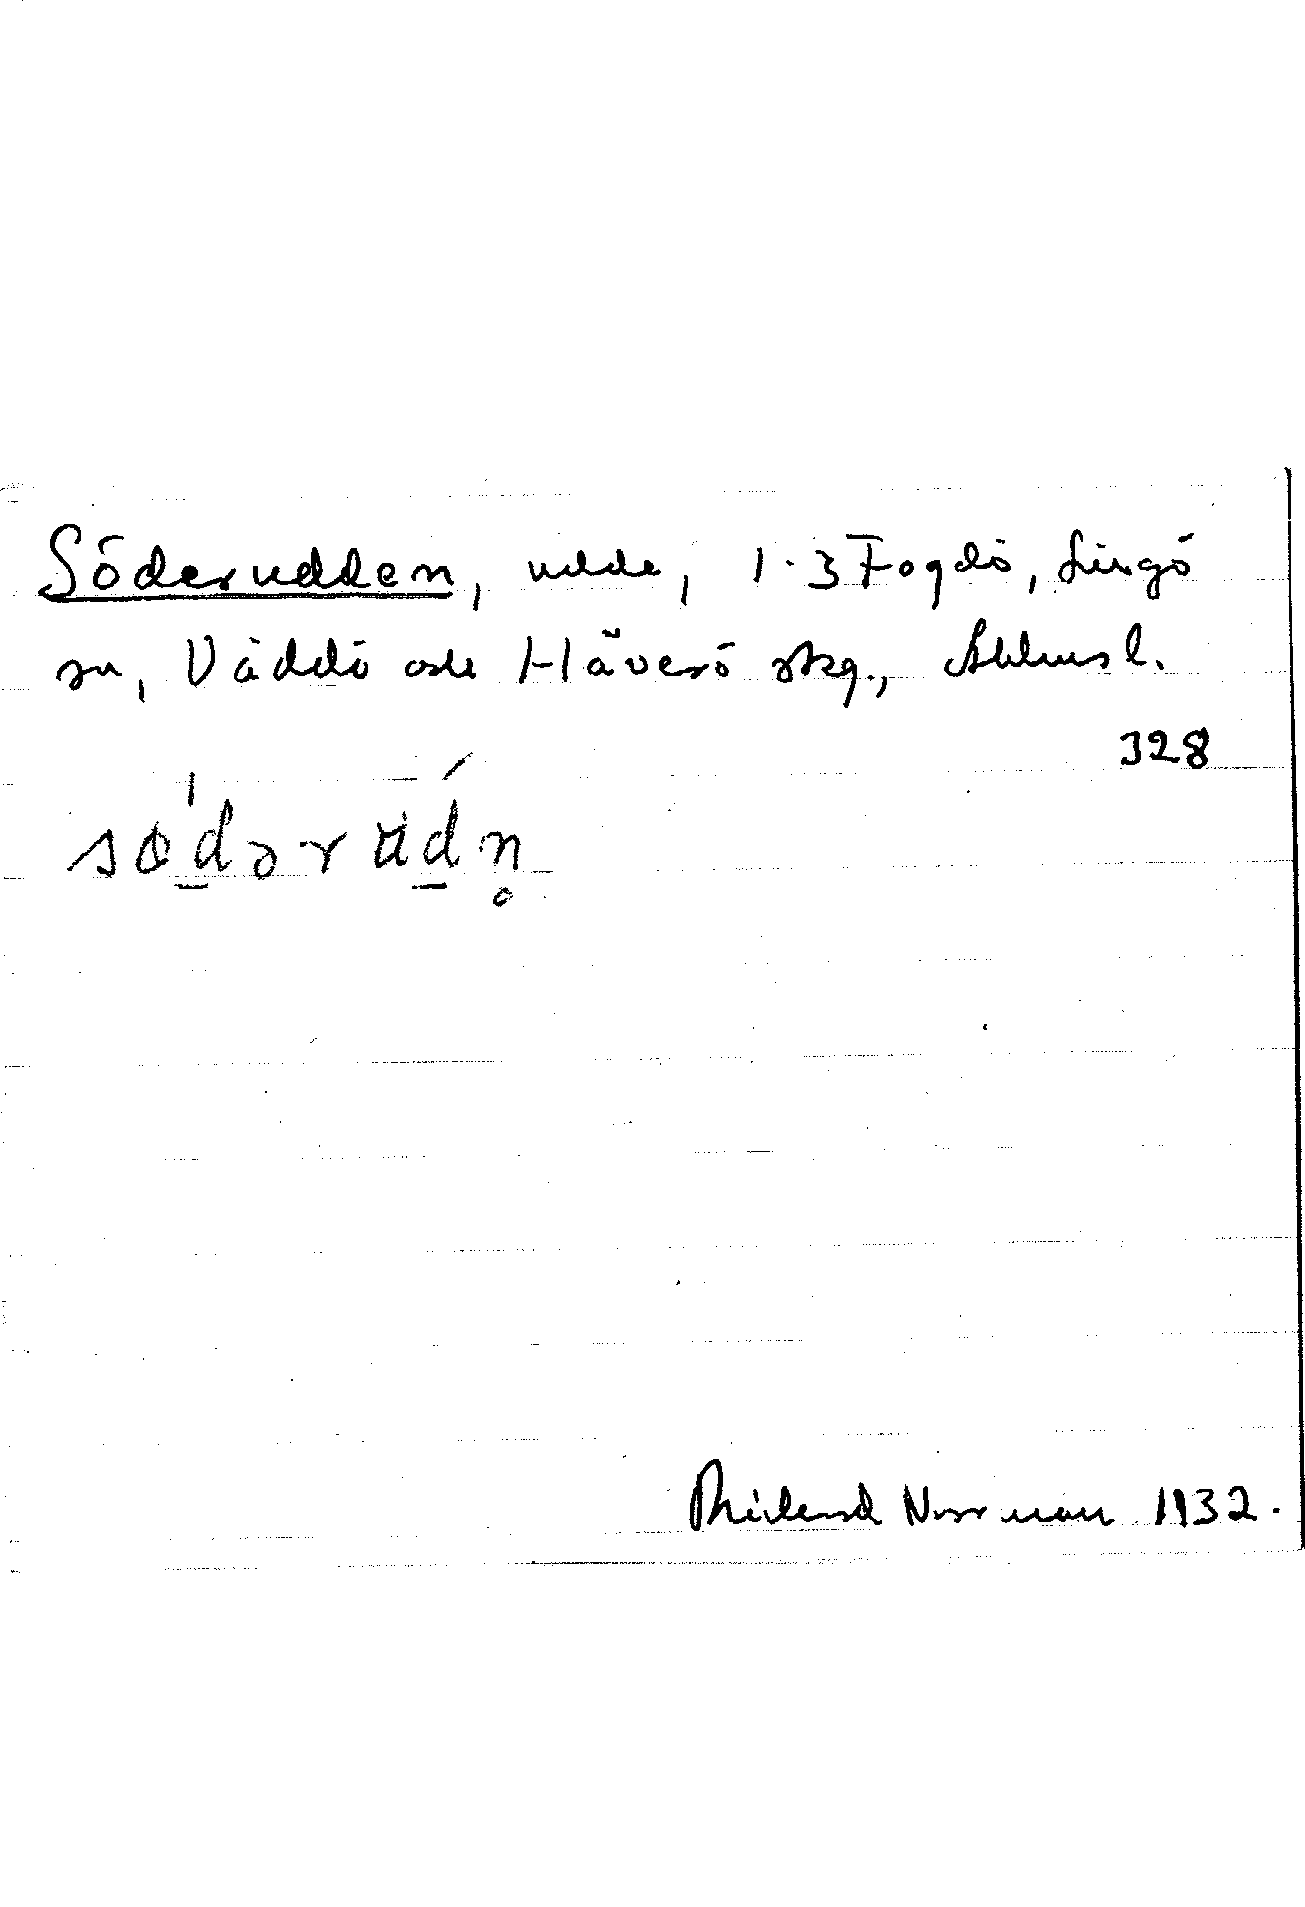 Söderudden, udde, 1.3 Fogdö, Singö
sn, Väddö och Häverö skg., Sthlms l.
328
sødərudn̥
Rickard Norrman 1932.